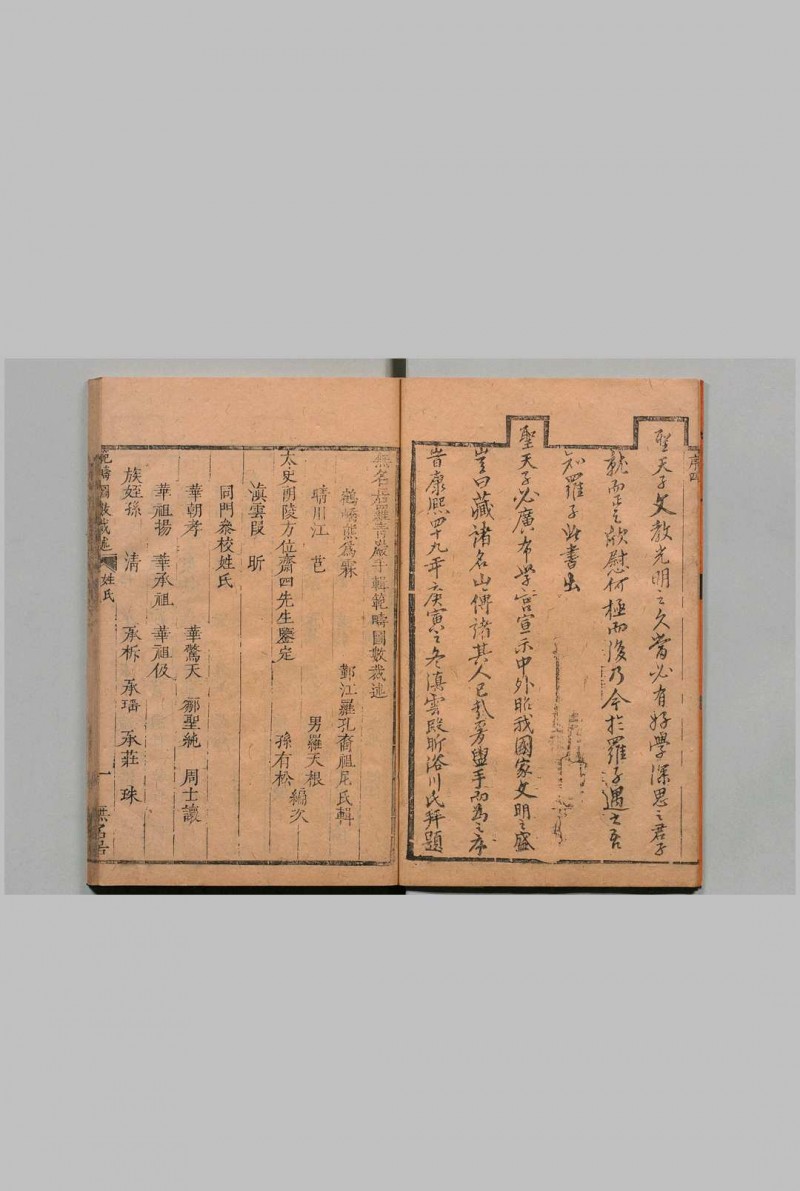 序四
聖天子文教光明之久當必有好學深思之君子
就而正之欣慰何極而後乃今於羅子遇之吾
知羅子此書出
聖天子必廣布學宮宣示中外昭我國家文明之盛
豈曰藏諸名山傳諸其人已哉爰盥手而為之序
旹康熙四十九年庚寅之冬滇雲段昕浴川氏拜題
無名居羅青巖手輯範疇圖數裁述
鶴嶠熊為霖 鄞江羅孔裔祖尼氏輯
晴川江芑 男羅天根 編次
太史朗陵方位齋四先生鑒定 孫有松
滇雲段昕
同門叅校姓氏
華朝孝 華驚天 鄢聖純 周士讓
華祖揚 華承祖 華祖伋
族姪孫 清 承柝 承璠 承莊 珠
範疇圖數裁述 姓氏 一 無名居